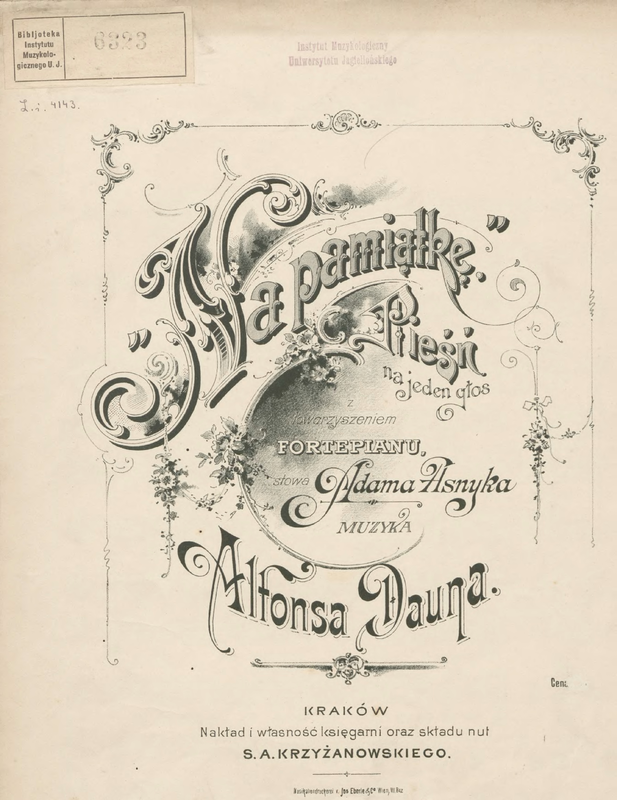 Bibljoteka
Instytutu
Muzykolo-
gicznego U. J.
6323
Instytut Muzykologiczny
Uniwersytetu Jagiellońskiego
L. i. 4143.
„Na pamiątkę.”
Pieśń
na jeden głos
z
towarzyszeniem
FORTEPIANU,
słowa Adama Asnyka
MUZYKA
Alfonsa Dauna.
Cena
KRAKÓW
Nakład i własność księgarni oraz składu nut
S. A. KRZYŻANOWSKIEGO.
v. Jos. Eberle & Co. Wien, VII.